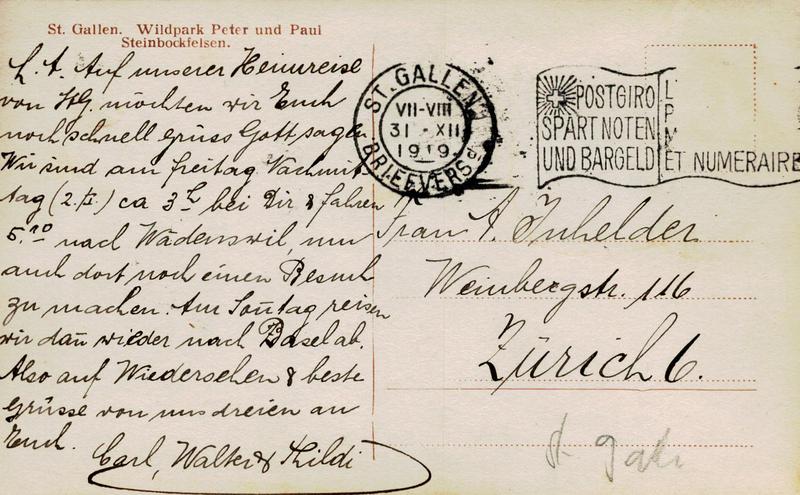 St. Gallen. Wildpark Peter und Paul
Steinbockfelsen.
L. A. Auf unserer Heimreise
von St.G. möchten wir Euch
noch schnell grüss Gott sagen
Wir sind am Freitag Nachmit
tag (2. I.) ca 3h bei Dir & fahren
5.10 nach Wädenswil, um
auch dort noch einen Besuch
zu machen. Am Sontag reisen
wir dan wieder nach Basel ab.
Also auf Wiedersehen & beste
grüsse von uns dreien an
Euch.
Carl, Walter & Hildi
ST. GALLEN 1
VII-VIII
31 · XII
1919
BRIEFVERSd
POSTGIRO
SPART NOTEN
UND BARGELD
L
P
M
ET NUMERAIRE
Frau A. Inhelder
Weinbergstr. 116
Zürich 6.
St. Gall